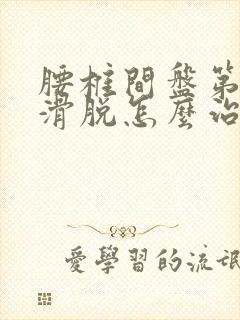 腰椎間盤第
滑脱怎麽治
愛學習的流氓